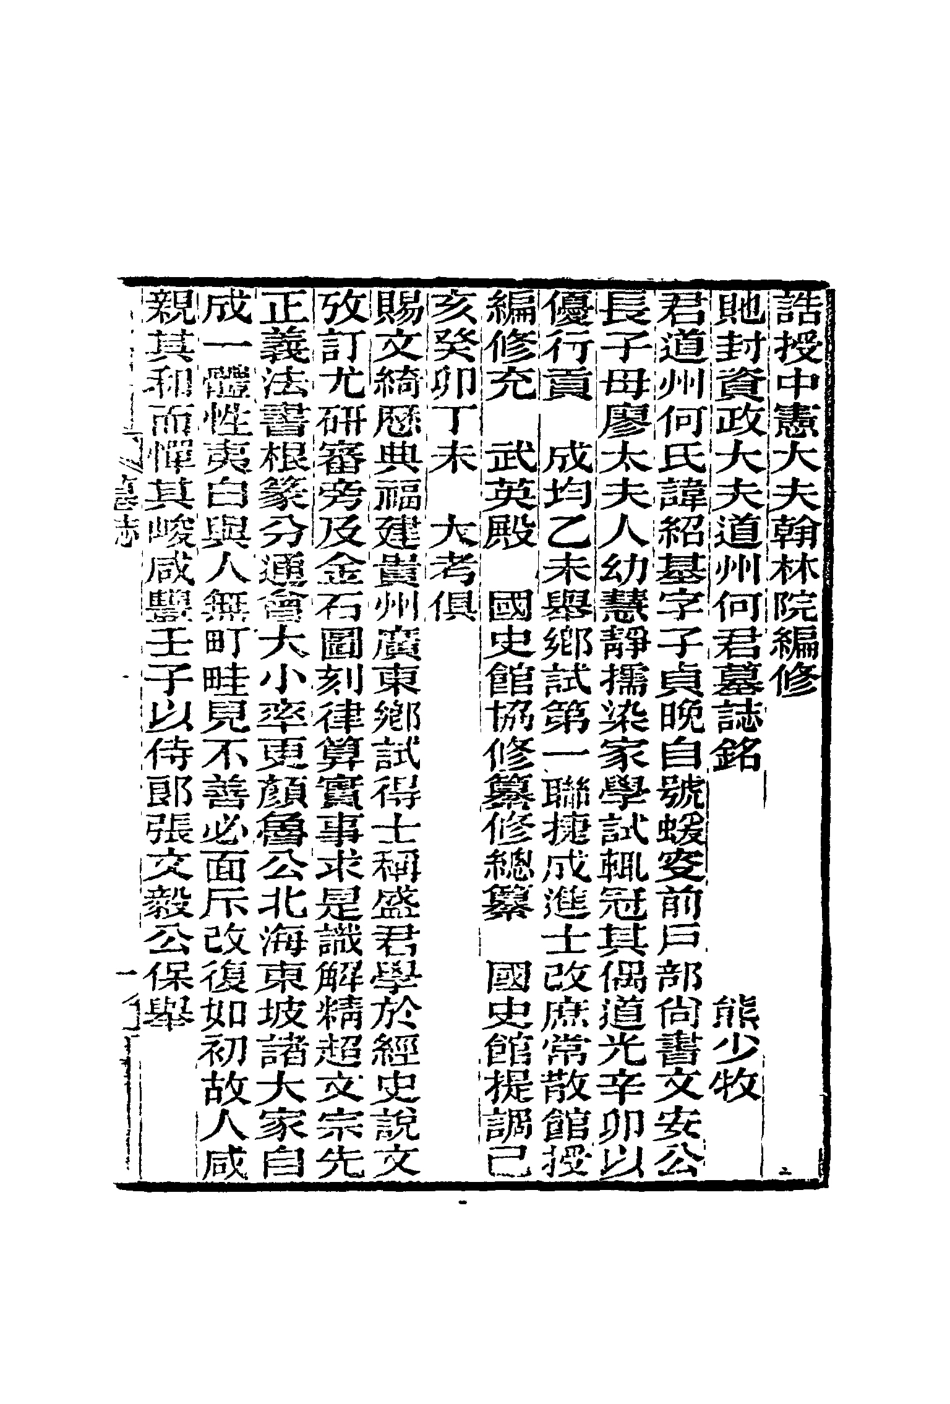 誥授中憲大夫翰林院編修
貤封資政大夫道州何君墓誌銘　熊少牧
君道州何氏諱紹基字子貞晚自號蝯叟前戶部尙書文安公
長子母廖太夫人幼慧靜擩染家學試輒冠其偶道光辛卯以
優行貢　成均乙未舉鄉試第一聯捷成進士改庶常散館授
編修充　武英殿　國史館協修纂修總纂　國史館提調己
亥癸卯丁未　大考俱
賜文綺歷典福建貴州廣東鄉試得士稱盛君學於經史說文
攷訂尤研審旁及金石圖刻律算實事求是識解精超文宗先
正義法書根篆分通會大小率更顏魯公北海東坡諸大家自
成一體性夷白與人無町畦見不善必面斥改復如初故人咸
親其和而憚其峻咸豐壬子以侍郎張文毅公保舉
墓誌